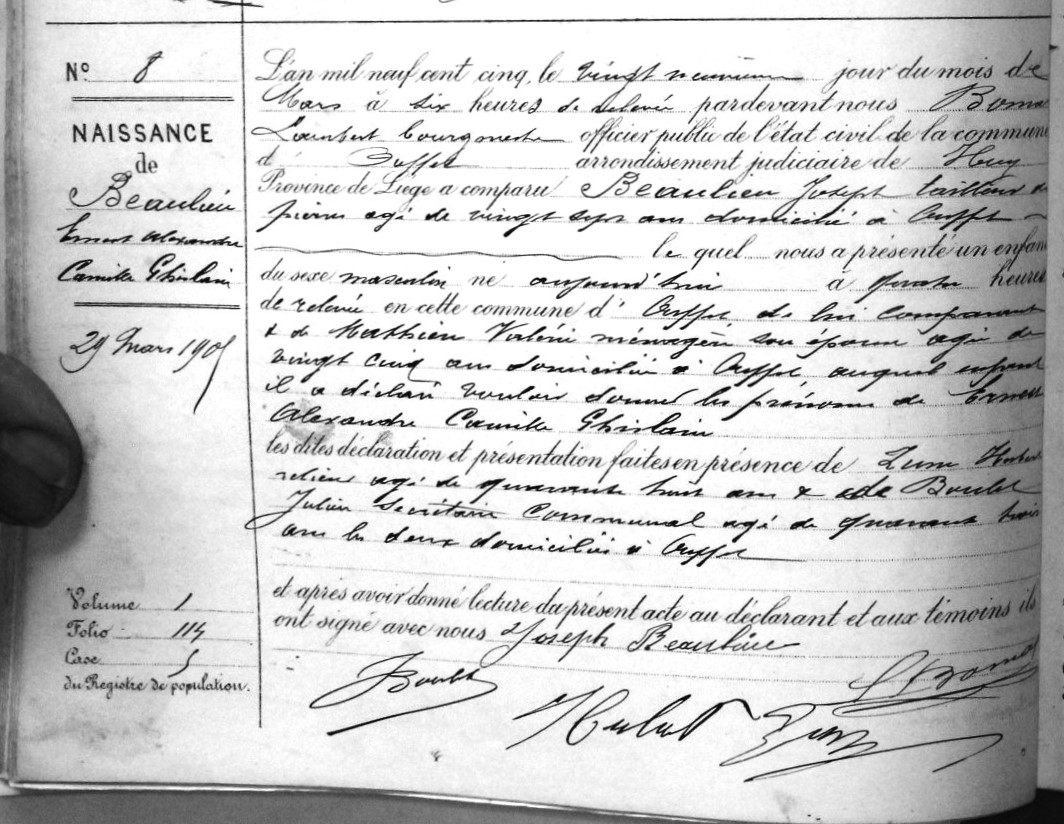 N° 8
NAISSANCE
de
Beaulieu
Ernest Alexandre
Camille Ghislain
29 Mars 1905
Volume 1
Folio 114
Case 5
du Registre de population.
L'an mil neuf cent cinq, le vingt neuvième jour du mois de
Mars à six heures de relevée pardevant nous Boma
Lambert bourgmestre officier public de l'état civil de la commune
d' Ouffet arrondissement judiciaire de Huy
Province de Liége a comparu Beaulieu Joseph tailleur de
pierres agé de vingt sept ans domicilié à Ouffet
le quel nous a présenté un enfant
du sexe masculin né aujourd'hui à quatre heures
de relevée en cette commune d' Ouffet, de lui comparant
& de Mathieu Valérie ménagère son épouse agée de
vingt cinq ans domiciliée à Ouffet auquel enfant
il a déclaré vouloir donner les prénoms de Ernest
Alexandre Camille Ghislain
les dites déclaration et présentation faites en présence de Hubert
agé de quarante huit ans & de Boulet
Julien Secrétaire Communal agé de quarante trois
ans les deux domiciliés à Ouffet
et après avoir donné lecture du présent acte au déclarant et aux témoins ils
ont signé avec nous Joseph Beaulieu
JBoulet
Hubert